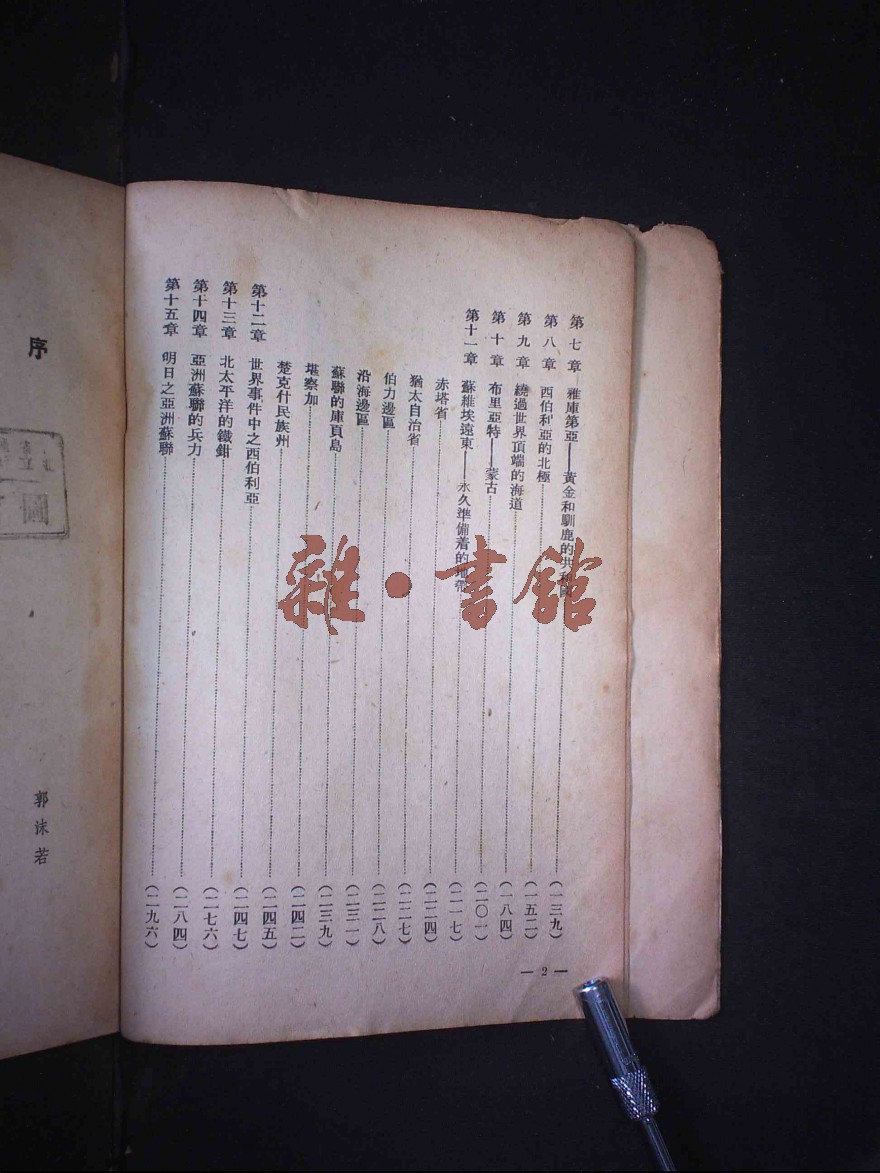 第七章 雅庫第亞——黃金和馴鹿的共和國 (一三九)
第八章 西伯利亞的北極 (一五二)
第九章 繞過世界頂端的海道 (一八四)
第十章 布里亞特——蒙古 (二〇一)
第十一章 蘇維埃遠東——永久準備着的地帶 (二一七)
赤塔省 (二二四)
猶太自治省 (二二七)
伯力邊區 (二二八)
沿海邊區 (二三一)
蘇聯的庫頁島 (二三九)
堪察加 (二四二)
楚克什民族州 (二四五)
第十二章 世界事件中之西伯利亞 (二四七)
第十三章 北太平洋的鐵鉗 (二七六)
第十四章 亞洲蘇聯的兵力 (二八四)
第十五章 明日之亞洲蘇聯 (二九六)
— 2 —
序
郭沫若
圖
雜·書館